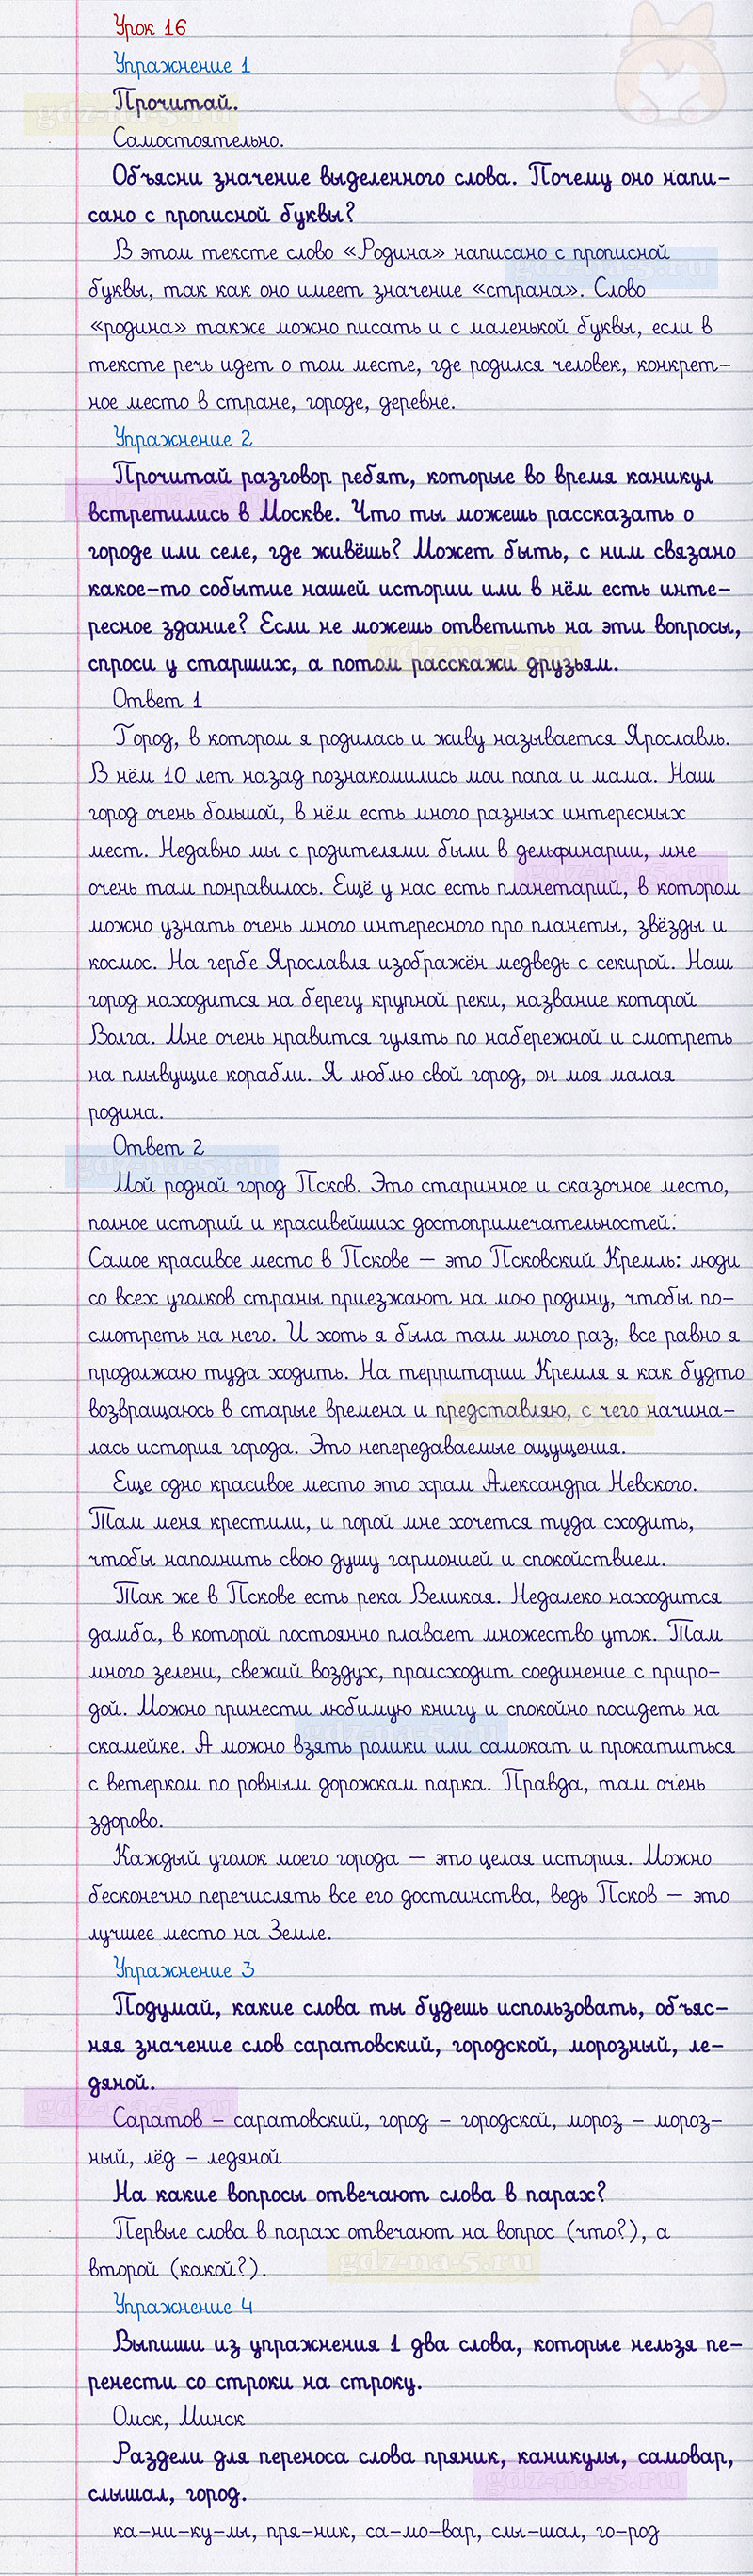 Урок 16
Упражнение 1
Прочитай.
Самостоятельно.
Объясни значение выделенного слова. Почему оно напи-
сано с прописной буквы?
В этом тексте слово «Родина» написано с прописной
буквы, так как оно имеет значение «страна». Слово
«родина» также можно писать и с маленькой буквы, если в
тексте речь идет о том месте, где родился человек, конкрет-
ное место в стране, городе, деревне.
Упражнение 2
Прочитай разговор ребят, которые во время каникул
встретились в Москве. Что ты можешь рассказать о
городе или селе, где живёшь? Может быть, с ним связано
какое-то событие нашей истории или в нём есть инте-
ресное здание? Если не можешь ответить на эти вопросы,
спроси у старших, а потом расскажи друзьям.
Ответ 1
Город, в котором я родилась и живу называется Ярославль.
В нём 10 лет назад познакомились мои папа и мама. Наш
город очень большой, в нём есть много разных интересных
мест. Недавно мы с родителями были в дельфинарии, мне
очень там понравилось. Ещё у нас есть планетарий, в котором
можно узнать очень много интересного про планеты, звёзды и
космос. На гербе Ярославля изображён медведь с секирой. Наш
город находится на берегу крупной реки, название которой
Волга. Мне очень нравится гулять по набережной и смотреть
на плывущие корабли. Я люблю свой город, он моя малая
родина.
Ответ 2
Мой родной город Псков. Это старинное и сказочное место,
полное историй и красивейших достопримечательностей.
Самое красивое место в Пскове — это Псковский Кремль: люди
со всех уголков страны приезжают на мою родину, чтобы по-
смотреть на него. И хоть я была там много раз, все равно я
продолжаю туда ходить. На территории Кремля я как будто
возвращаюсь в старые времена и представляю, с чего начина-
лась история города. Это непередаваемые ощущения.
Еще одно красивое место это храм Александра Невского.
Там меня крестили, и порой мне хочется туда сходить,
чтобы наполнить свою душу гармонией и спокойствием.
Так же в Пскове есть река Великая. Недалеко находится
дамба, в которой постоянно плавает множество уток. Там
много зелени, свежий воздух, происходит соединение с приро-
дой. Можно принести любимую книгу и спокойно посидеть на
скамейке. А можно взять ролики или самокат и прокатиться
с ветерком по ровным дорожкам парка. Правда, там очень
здорово.
Каждый уголок моего города — это целая история. Можно
бесконечно перечислять все его достоинства, ведь Псков — это
лучшее место на Земле.
Упражнение 3
Подумай, какие слова ты будешь использовать, объяс-
няя значение слов саратовский, городской, морозный, ле-
дяной.
Саратов – саратовский, город – городской, мороз – мороз-
ный, лёд – ледяной
На какие вопросы отвечают слова в парах?
Первые слова в парах отвечают на вопрос (что?), а
второй (какой?).
Упражнение 4
Выпиши из упражнения 1 два слова, которые нельзя пе-
ренести со строки на строку.
Омск, Минск
Раздели для переноса слова пряник, каникулы, самовар,
слышал, город.
ка-ни-ку-лы, пря-ник, са-мо-вар, слы-шал, го-род
gdz-na-5.ru
gdz-na-5.ru
gdz-na-5.ru
gdz-na-5.ru
gdz-na-5.ru
gdz-na-5.ru
gdz-na-5.ru
gdz-na-5.ru
gdz-na-5.ru
gdz-na-5.ru
gdz-na-5.ru